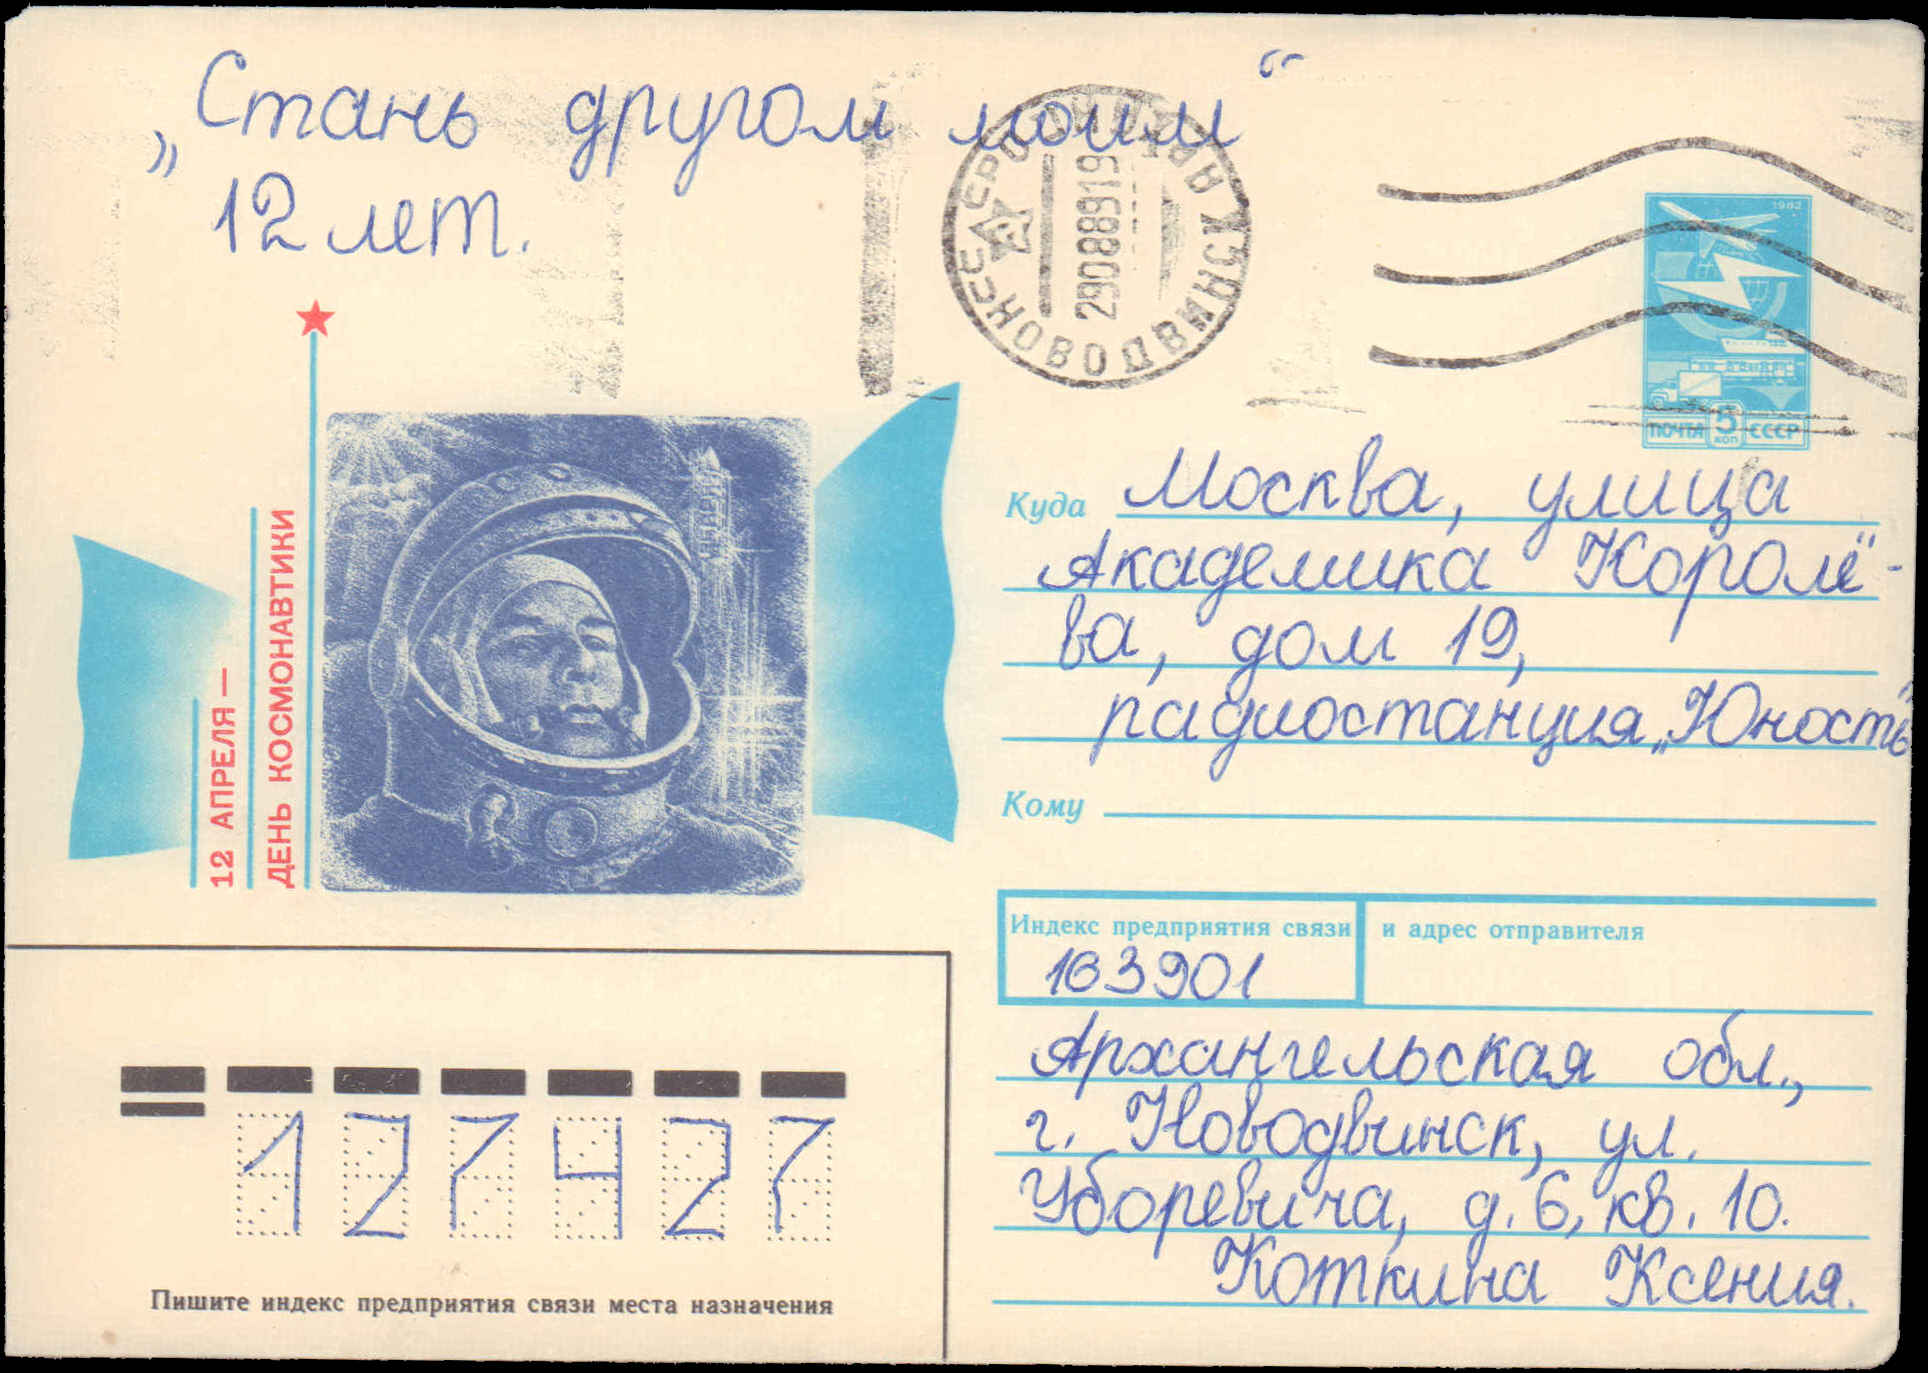 „Стань другом моим“
12 лет.
СССР
НОВОДВИНСК
29088819
1982
ПОЧТА 5 КОП СССР
12 АПРЕЛЯ —
ДЕНЬ КОСМОНАВТИКИ
Куда Москва, улица
Академика Королё-
ва, дом 19,
радиостанция „Юность“
Кому
Индекс предприятия связи и адрес отправителя
163901
Архангельская обл.,
г. Новодвинск, ул.
Уборевича, д. 6, кв. 10.
Коткина Ксения.
127427
Пишите индекс предприятия связи места назначения